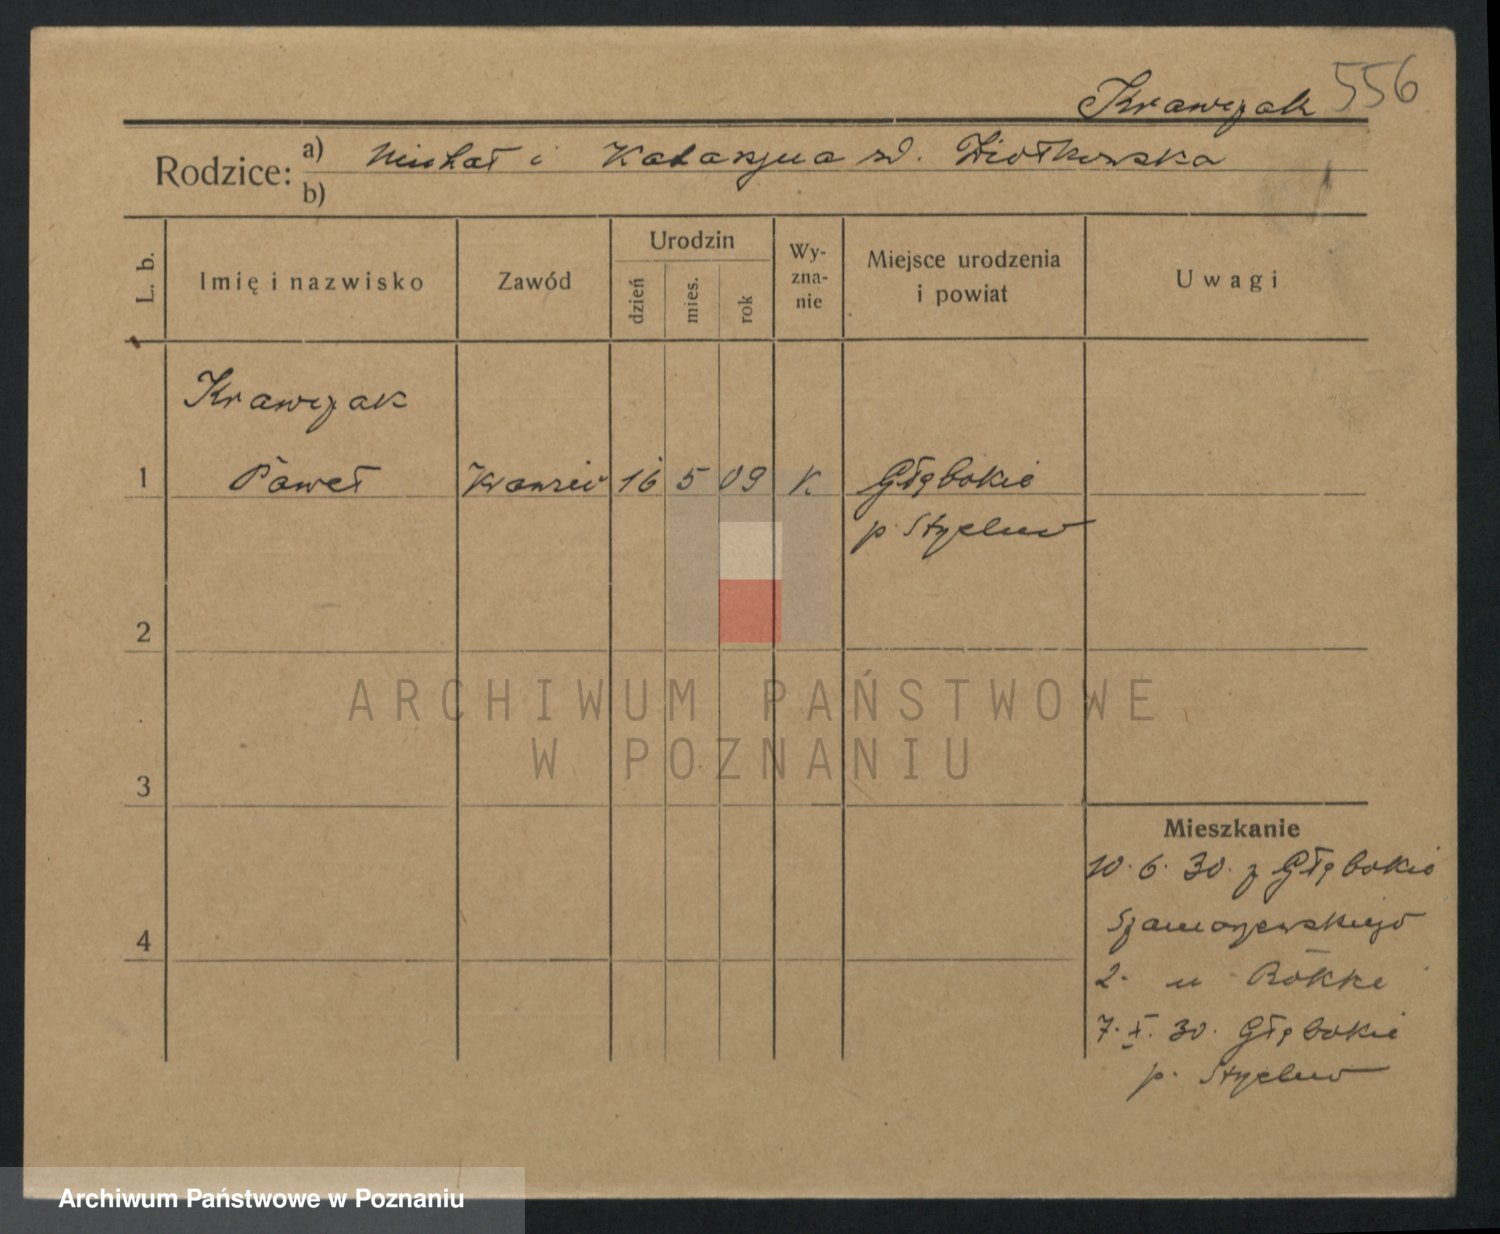 Krawczak 556
Rodzice: a) Michał i Katarzyna zd. Ziołkowska
b)
L. b.
Imię i nazwisko
Zawód
Urodzin
dzień
mies.
rok
Wy-
zna-
nie
Miejsce urodzenia
i powiat
Uwagi
Krawczak
1 Paweł krawiec 16 5 09 k. Głębokie
p.
2
3
4
Mieszkanie
10. 6. 30. z Głębokie
Szamarzewskiego
2. u
7. X. 30. Głębokie
p.
ARCHIWUM PAŃSTWOWE
W POZNANIU
Archiwum Państwowe w Poznaniu